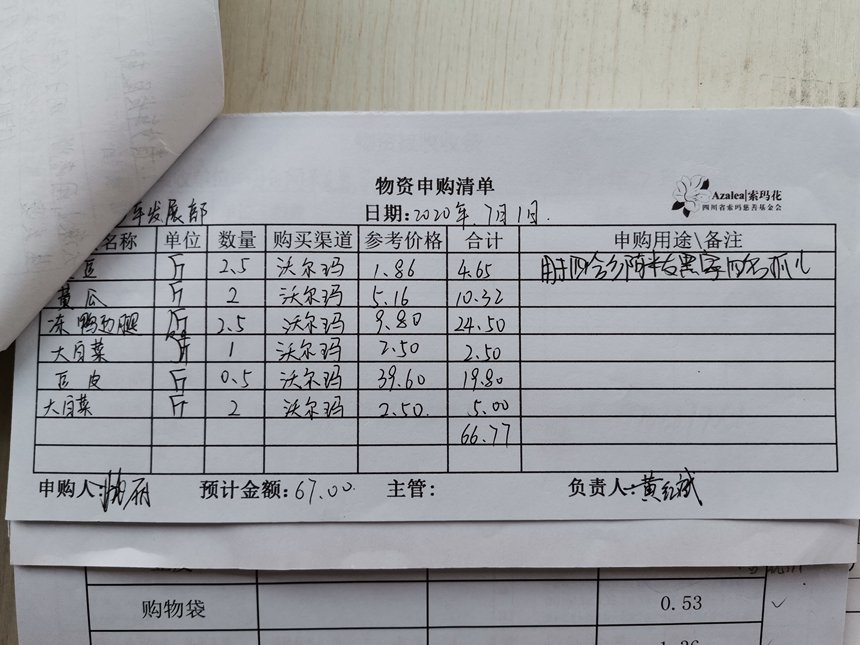 物资申购清单
Azalea|索玛花
四川省索玛慈善基金会
年发展部 日期:2020年7月1日.
名称 单位 数量 购买渠道 参考价格 合计 申购用途\备注
豆 斤 2.5 沃尔玛 1.86 4.65
黄瓜 斤 2 沃尔玛 5.16 10.32
冻鸭边腿 斤 2.5 沃尔玛 9.80 24.50
大白菜 斤 1 沃尔玛 2.50 2.50
豆皮 斤 0.5 沃尔玛 39.60 19.80
大白菜 斤 2 沃尔玛 2.50. 5.00
66.77
申购人: 预计金额:67.00. 主管: 负责人:黄红斌
购物袋 0.53